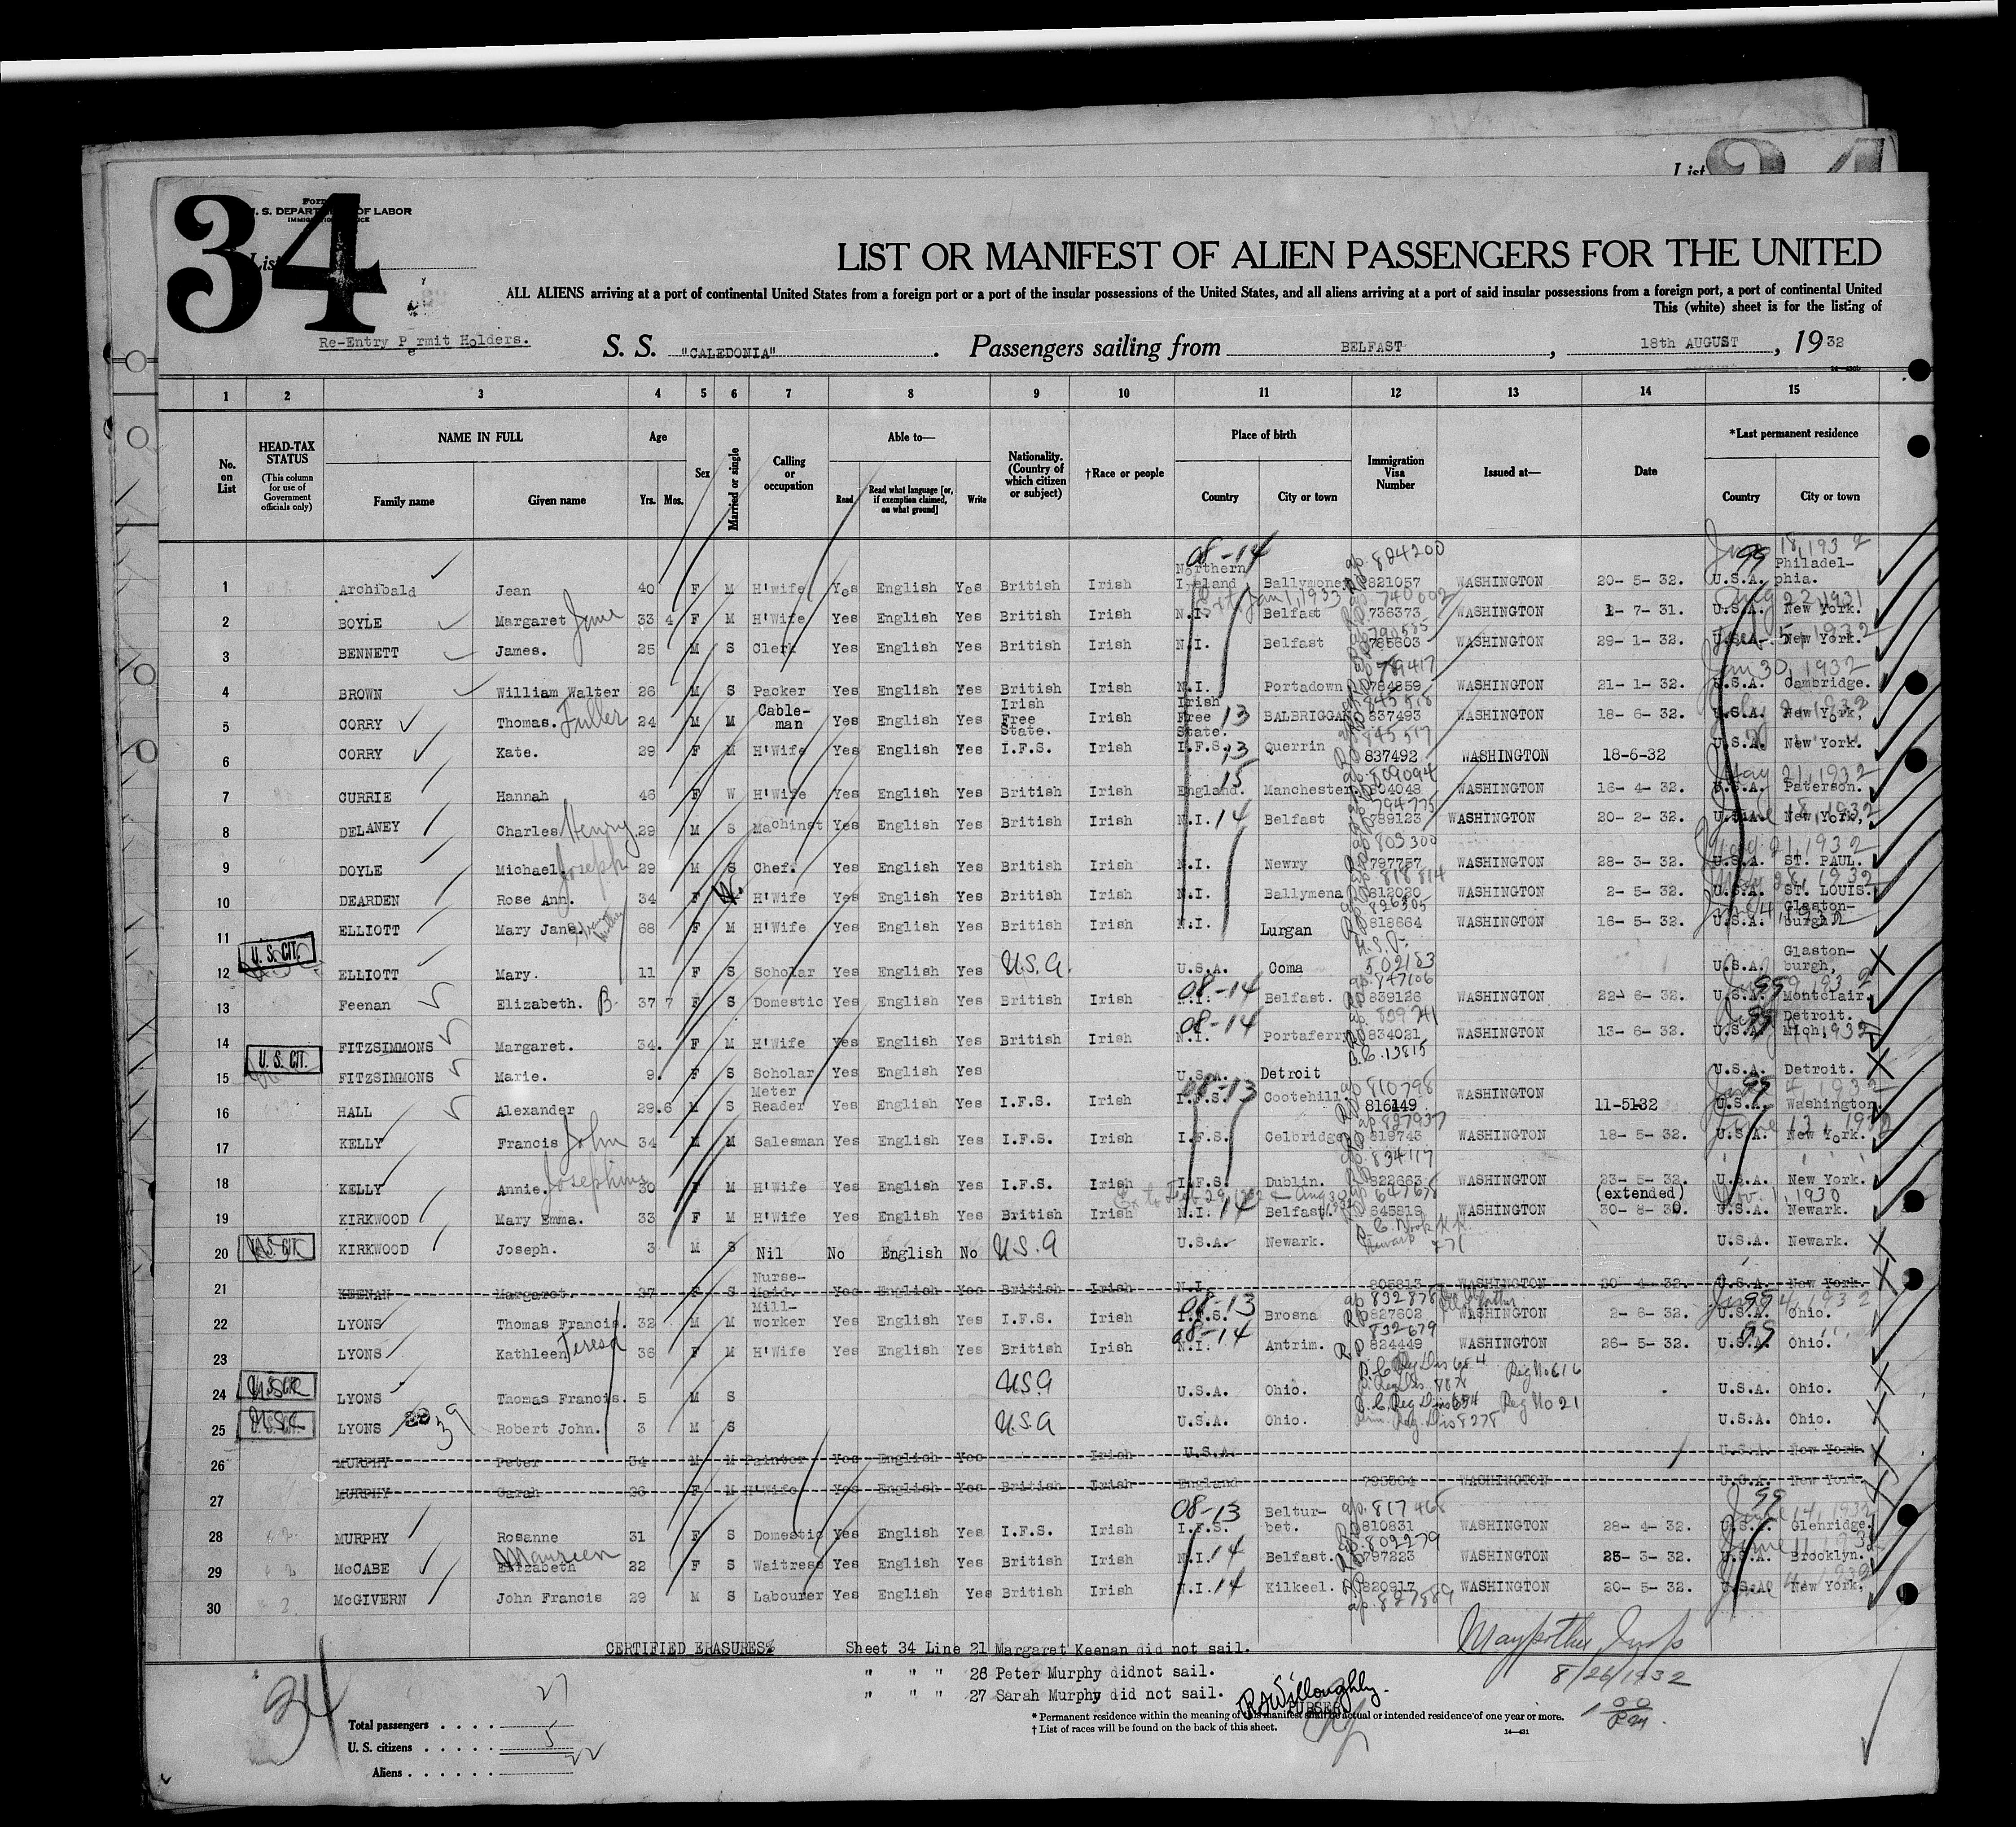 List
34
Form
U. S. DEPARTMENT OF LABOR
IMMIGRATION SERVICE
List
LIST OR MANIFEST OF ALIEN PASSENGERS FOR THE UNITED
ALL ALIENS arriving at a port of continental United States from a foreign port or a port of the insular possessions of the United States, and all aliens arriving at a port of said insular possessions from a foreign port, a port of continental United
This (white) sheet is for the listing of
Re-Entry Permit Holders.
S. S. "CALEDONIA" . Passengers sailing from BELFAST , 18th AUGUST , 1932
1 2 3 4 5 6 7 8 9 10 11 12 13 14 15
No. on List
HEAD-TAX STATUS (This column for use of Government officials only)
NAME IN FULL Family name Given name
Age Yrs. Mos.
Sex
Married or single
Calling or occupation
Able to— Read Read what language [or, if exemption claimed, on what ground] Write
Nationality. (Country of which citizen or subject)
†Race or people
Place of birth Country City or town
Immigration Visa Number
Issued at—
Date
*Last permanent residence Country City or town
1 Archibald Jean 40 F M H'wife Yes English Yes British Irish 08-14 Northern Ireland Ballymoney ap. 804200 821057 WASHINGTON 20-5-32. U.S.A. Philadelphia. 18, 1932
2 BOYLE Margaret Jane 33 4 F M H'Wife Yes English Yes British Irish N.I. Belfast 740002 736373 WASHINGTON 1-7-31. U.S.A. New York. Aug 22, 1931
3 BENNETT James. 25 M S Clerk Yes English Yes British Irish N.I. Belfast WASHINGTON 29-1-32. U.S.A. New York.
4 BROWN William Walter 26 M S Packer Yes English Yes British Irish N.I. Portadown 789417 784859 WASHINGTON 21-1-32. U.S.A. Cambridge. Jan 30, 1932
5 CORRY Thomas. Fuller 24 M M Cable-man Yes English Yes Irish Free State. Irish Irish Free State. 13 BALBRIGGAN 845518 837493 WASHINGTON 18-6-32. U.S.A. New York,
6 CORRY Kate. 29 F M H'Wife Yes English Yes I.F.S. Irish I.F.S. 13 Querrin 845517 837492 WASHINGTON 18-6-32 U.S.A. New York.
7 CURRIE Hannah 46 F W H'Wife Yes English Yes British Irish 15 England. Manchester 809094 804048 WASHINGTON 16-4-32. U.S.A. Paterson. May 21, 1932
8 DELANEY Charles Henry 29 M S Machinst Yes English Yes British Irish N.I. 14 Belfast 794775 789123 WASHINGTON 20-2-32. U.S.A. New York, 18, 1932
9 DOYLE Michael Joseph 29 M S Chef. Yes English Yes British Irish N.I. Newry 803300 797757 WASHINGTON 28-3-32. U.S.A. ST. PAUL. 21, 1932
10 DEARDEN Rose Ann. 34 F H'Wife Yes English Yes British Irish N.I. Ballymena 818814 812020 WASHINGTON 2-5-32. U.S.A. ST. LOUIS. 28, 1932
11 ELLIOTT Mary Jane. 68 F M H'Wife Yes English Yes British Irish N.I. Lurgan 826305 818664 WASHINGTON 16-5-32. U.S.A. Glaston-burgh.
12 U.S. CIT. ELLIOTT Mary. 11 F S Scholar Yes English Yes U.S.A. U.S.A. Coma 502183 U.S.A. Glaston-burgh, X
13 Feenan Elizabeth. B. 37 7 F S Domestic Yes English Yes British Irish 08-14 N.I. Belfast. ap. 847106 839126 WASHINGTON 22-6-32. U.S.A. Montclair.
14 FITZSIMMONS Margaret. 34. F M H'Wife Yes English Yes British Irish 08-14 N.I. Portaferry 834021 WASHINGTON 13-6-32. U.S.A. Detroit. Mich,
15 U. S. CIT. FITZSIMMONS Marie. 9. F S Scholar Yes English Yes U.S.A. Detroit B.C. 13815 U.S.A. Detroit. X
16 HALL Alexander 29.6 M S Meter Reader Yes English Yes I.F.S. Irish 08-13 I.F.S. Cootehill. 810798 816449 WASHINGTON 11-5-32 U.S.A. Washington.
17 KELLY Francis John 34 M M Salesman Yes English Yes I.F.S. Irish I.F.S. Celbridge 827937 819743 WASHINGTON 18-5-32. U.S.A. New York.
18 KELLY Annie. Josephine 30 F M H'Wife Yes English Yes I.F.S. Irish I.F.S. Dublin. 834117 822663 WASHINGTON 23-5-32. U.S.A. New York.
19 KIRKWOOD Mary Emma. 33 F M H'Wife Yes English Yes British Irish N.I. 14 Belfast 645819 WASHINGTON (extended) 30-8-30. U.S.A. Newark. Nov. 1, 1930
20 U.S. CIT. KIRKWOOD Joseph. 3 M S Nil No English No U.S.A U.S.A. Newark. U.S.A. Newark. X
21 KEENAN Margaret. 37 F S Nurse-Maid. Yes English Yes British Irish N.I. 805813 WASHINGTON 20-4-32. U.S.A. New York. X
22 LYONS Thomas Francis. 32 M M Mill-worker Yes English Yes I.F.S. Irish 08-13 I.F.S. Brosna ap 832878 RP 827602 WASHINGTON 2-6-32. U.S.A. Ohio.
23 LYONS Kathleen Teresa 36 F M H'Wife Yes English Yes British Irish 08-14 N.I. Antrim. 832679 RP 824449 WASHINGTON 26-5-32. U.S.A. Ohio.
24 LYONS Thomas Francis. 5 M S U.S.A U.S.A. Ohio. Reg No 616 U.S.A. Ohio. X
25 LYONS 39 Robert John. 3 M S U.S.A U.S.A. Ohio. B.C. Reg Dis 654 Reg No 21 U.S.A. Ohio. X
26 MURPHY Peter 34 M M Painter Yes English Yes Irish U.S.A. U.S.A. New York X
27 MURPHY Sarah 26 F M H'Wife Yes English Yes British Irish England WASHINGTON U.S.A. New York X
28 MURPHY Rosanne 31 F S Domestic Yes English Yes I.F.S. Irish 08-13 I.F.S. Beltur-bet. ap. 817468 810831 WASHINGTON 28-4-32. U.S.A. Glenridge. June 14, 1932
29 McCABE Elizabeth Maurien 22 F S Waitress Yes English Yes British Irish N.I. 14 Belfast. 802279 797223 WASHINGTON 25-3-32. U.S.A. Brooklyn.
30 McGIVERN John Francis 29 M S Labourer Yes English Yes British Irish N.I. 14 Kilkeel. 820917 ap. 827889 WASHINGTON 20-5-32. U.S.A. New York.
CERTIFIED ERASURES Sheet 34 Line 21 Margaret Keenan did not sail.
" " " 26 Peter Murphy didnot sail.
" " " 27 Sarah Murphy did not sail.
8/26/1932
RAWilloughly.
PURSER
34
Total passengers . . . . 27
U. S. citizens . . . . . 5
Aliens . . . . . . 22
* Permanent residence within the meaning of this manifest shall be actual or intended residence of one year or more.
† List of races will be found on the back of this sheet.
14—431